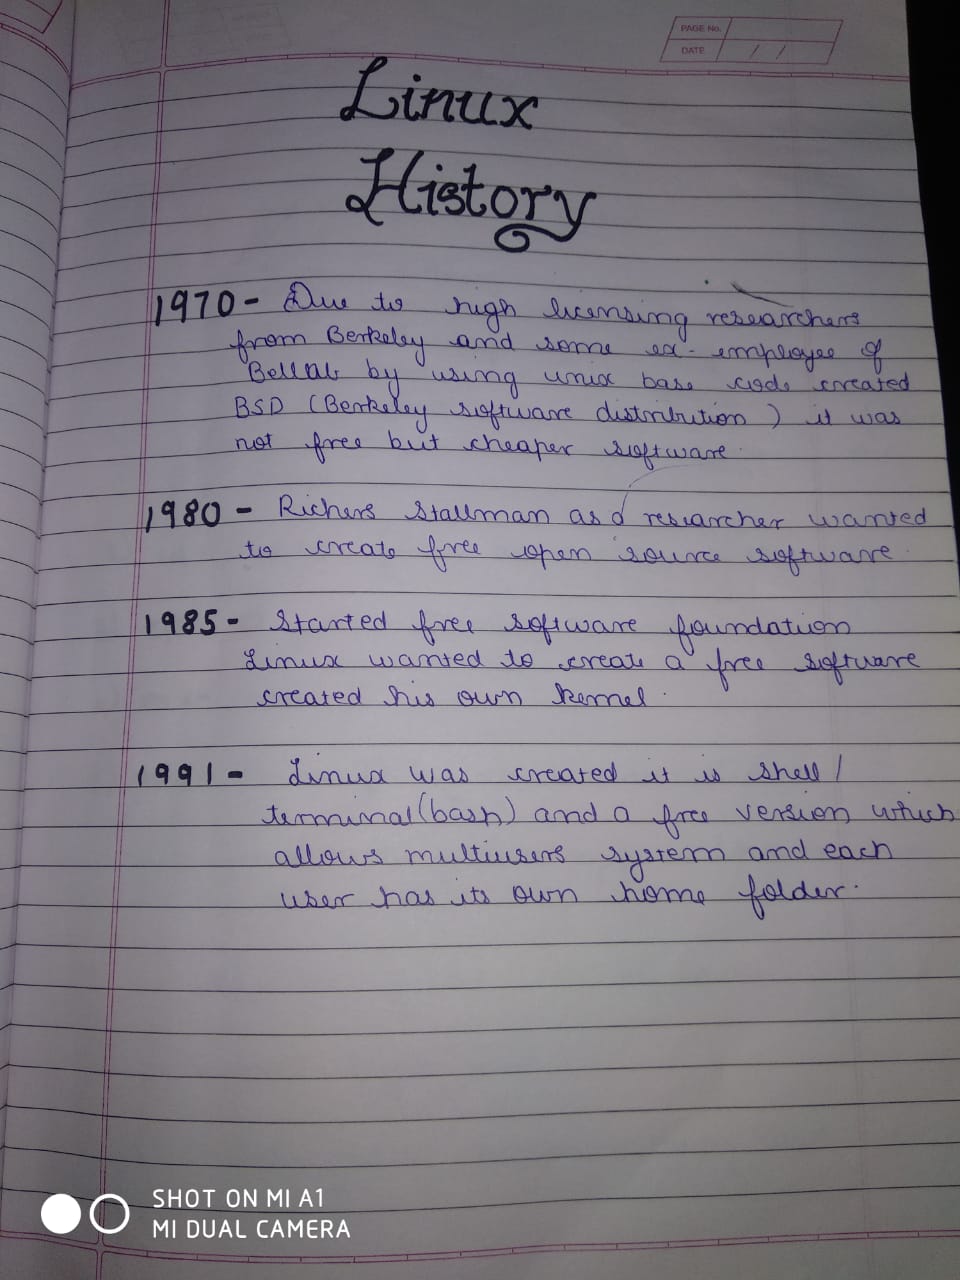 PAGE No.
DATE / /
Linux
History
1970 - Due to high licensing researchers
from Berkeley and some ex-employee of
Bellab by using unix base code created
BSD (Berkeley software distribution) it was
not free but cheaper software.
1980 - Richers Stallman as a researcher wanted
to create free open source software.
1985 - Started free software foundation
Linux wanted to create a free software
created his own kernel.
1991 - Linux was created it is shell/
terminal(bash) and a free version which
allows multiusers system and each
user has its own home folder.
SHOT ON MI A1
MI DUAL CAMERA